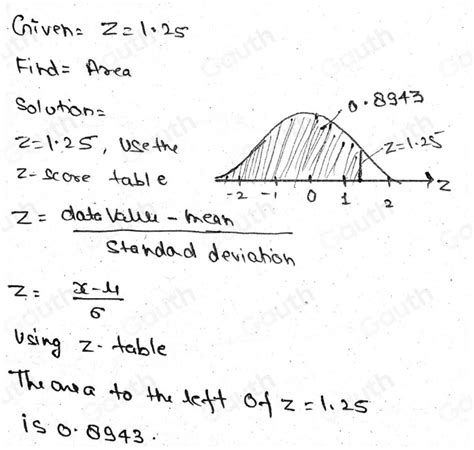 Given= Z=1.25
Find= Area
Solution=
Z=1.25, Use the
Z-score table
0.8943
Z=1.25
-2 -1 0 1 2 Z
Z= data Value - mean
Standard deviation
Z= x-μ
σ
Using z-table
The area to the left of z=1.25
is 0.8943.
Gauth